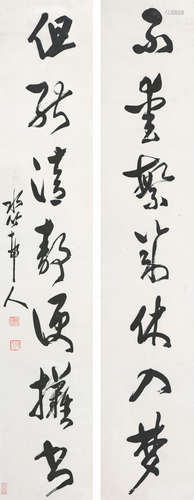 不愛繁華休入夢
但能清靜便攤書
水竹邨人